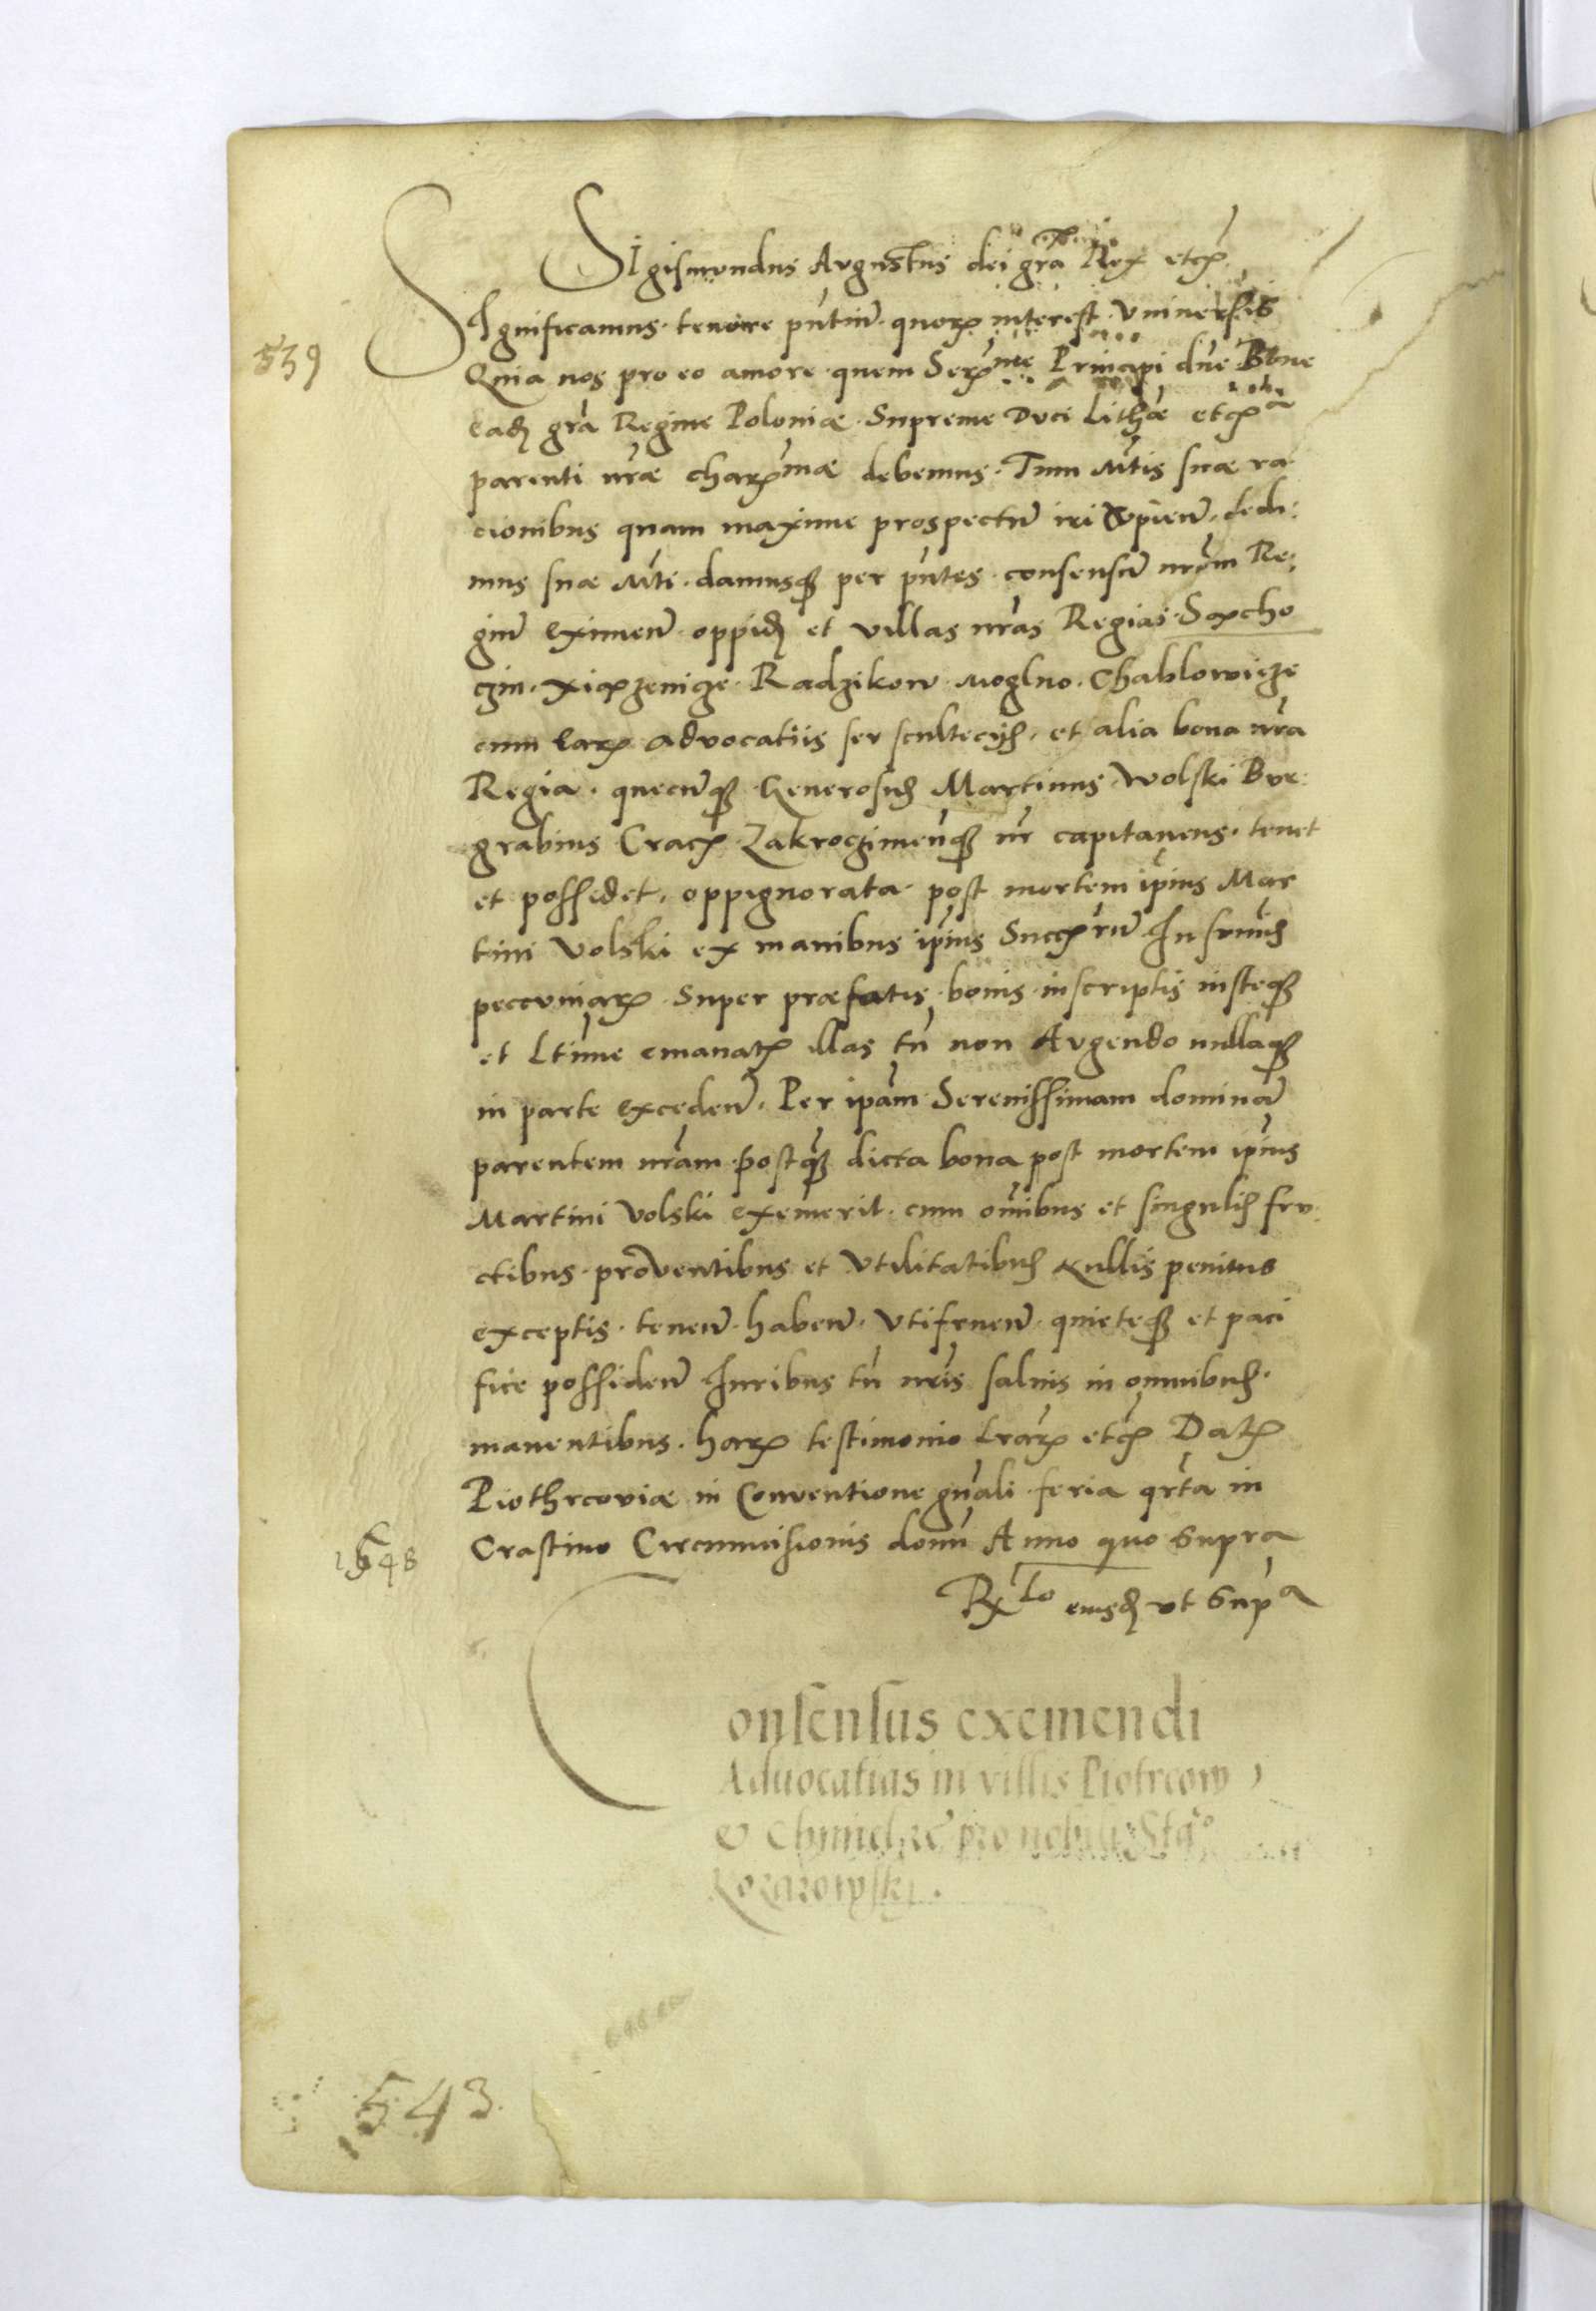 Sigismundus Augustus dei gr̃a Rex etcꝫ
539
Significamus tenore pñtiũ quorꝝ interest Universis
Quia nos pro eo amore quem Serꝫme Principi dñe Bone
eadꝫ gr̃a Regine Poloniæ Supreme Duci Lithæ etcꝫ
parenti nr̃æ charꝫmæ debemus. Tum Mtis suæ ra
cionibus quam maxime prospectũ iri cupien̄. dedi:
mus suæ Mti. damusqꝫ per pñtes consensũ nr̃ũm Re:
giũ eximen̄ oppidꝫ et villas nr̃as Regias Soxcho
czin. Xiązenicze Radzikow Moglno. Chablowicze
cum earꝝ advocatiis seu scultecijs, et alia bona nr̃a
Regia. quecũqꝫ Generosus Martinus Wolski Bur:
grabius Cracꝫ Zakroczimeñqꝫ nr̃ capitaneus. tenet
et possedet, oppignorata post mortem ip̃ius Mar
tini Volski ex manibus ip̃ius Succꝫrũ In sum̃is
peccuniarꝝ Super præfatis bonis inscriptis iusteqꝫ
et Ltime emanatꝫ illas tñ non Augendo nullaqꝫ
in parte exceden̄. Per ip̃am Serenissimam dominã
parentem nr̃am postqꝫ dicta bona post mortem ip̃ius
Martini Volski exemerit. cum om̃ibus et singulis fru
ctibus proventibus et Utilitatibus Nullis penitus
exceptis. tenen̄. haben̄. Utifruen̄. quieteqꝫ et paci
fice possiden̄ Iuribus tñ nr̃is salvis in omnibus
manentibus. harꝝ testimonio Lr̃arꝝ etcꝫ Datꝫ
Piothrcoviæ in Conventione gñali feria qr̃ta in
1548
Crastino Circumcisionis domĩ Anno quo Supra
Rꝫlo eiusdꝫ ut Sup̃a
Consensus exemendi
Advocatias in villis Piotrcow
& Chmiel pro nobili Staº
Kozarowski.
1543